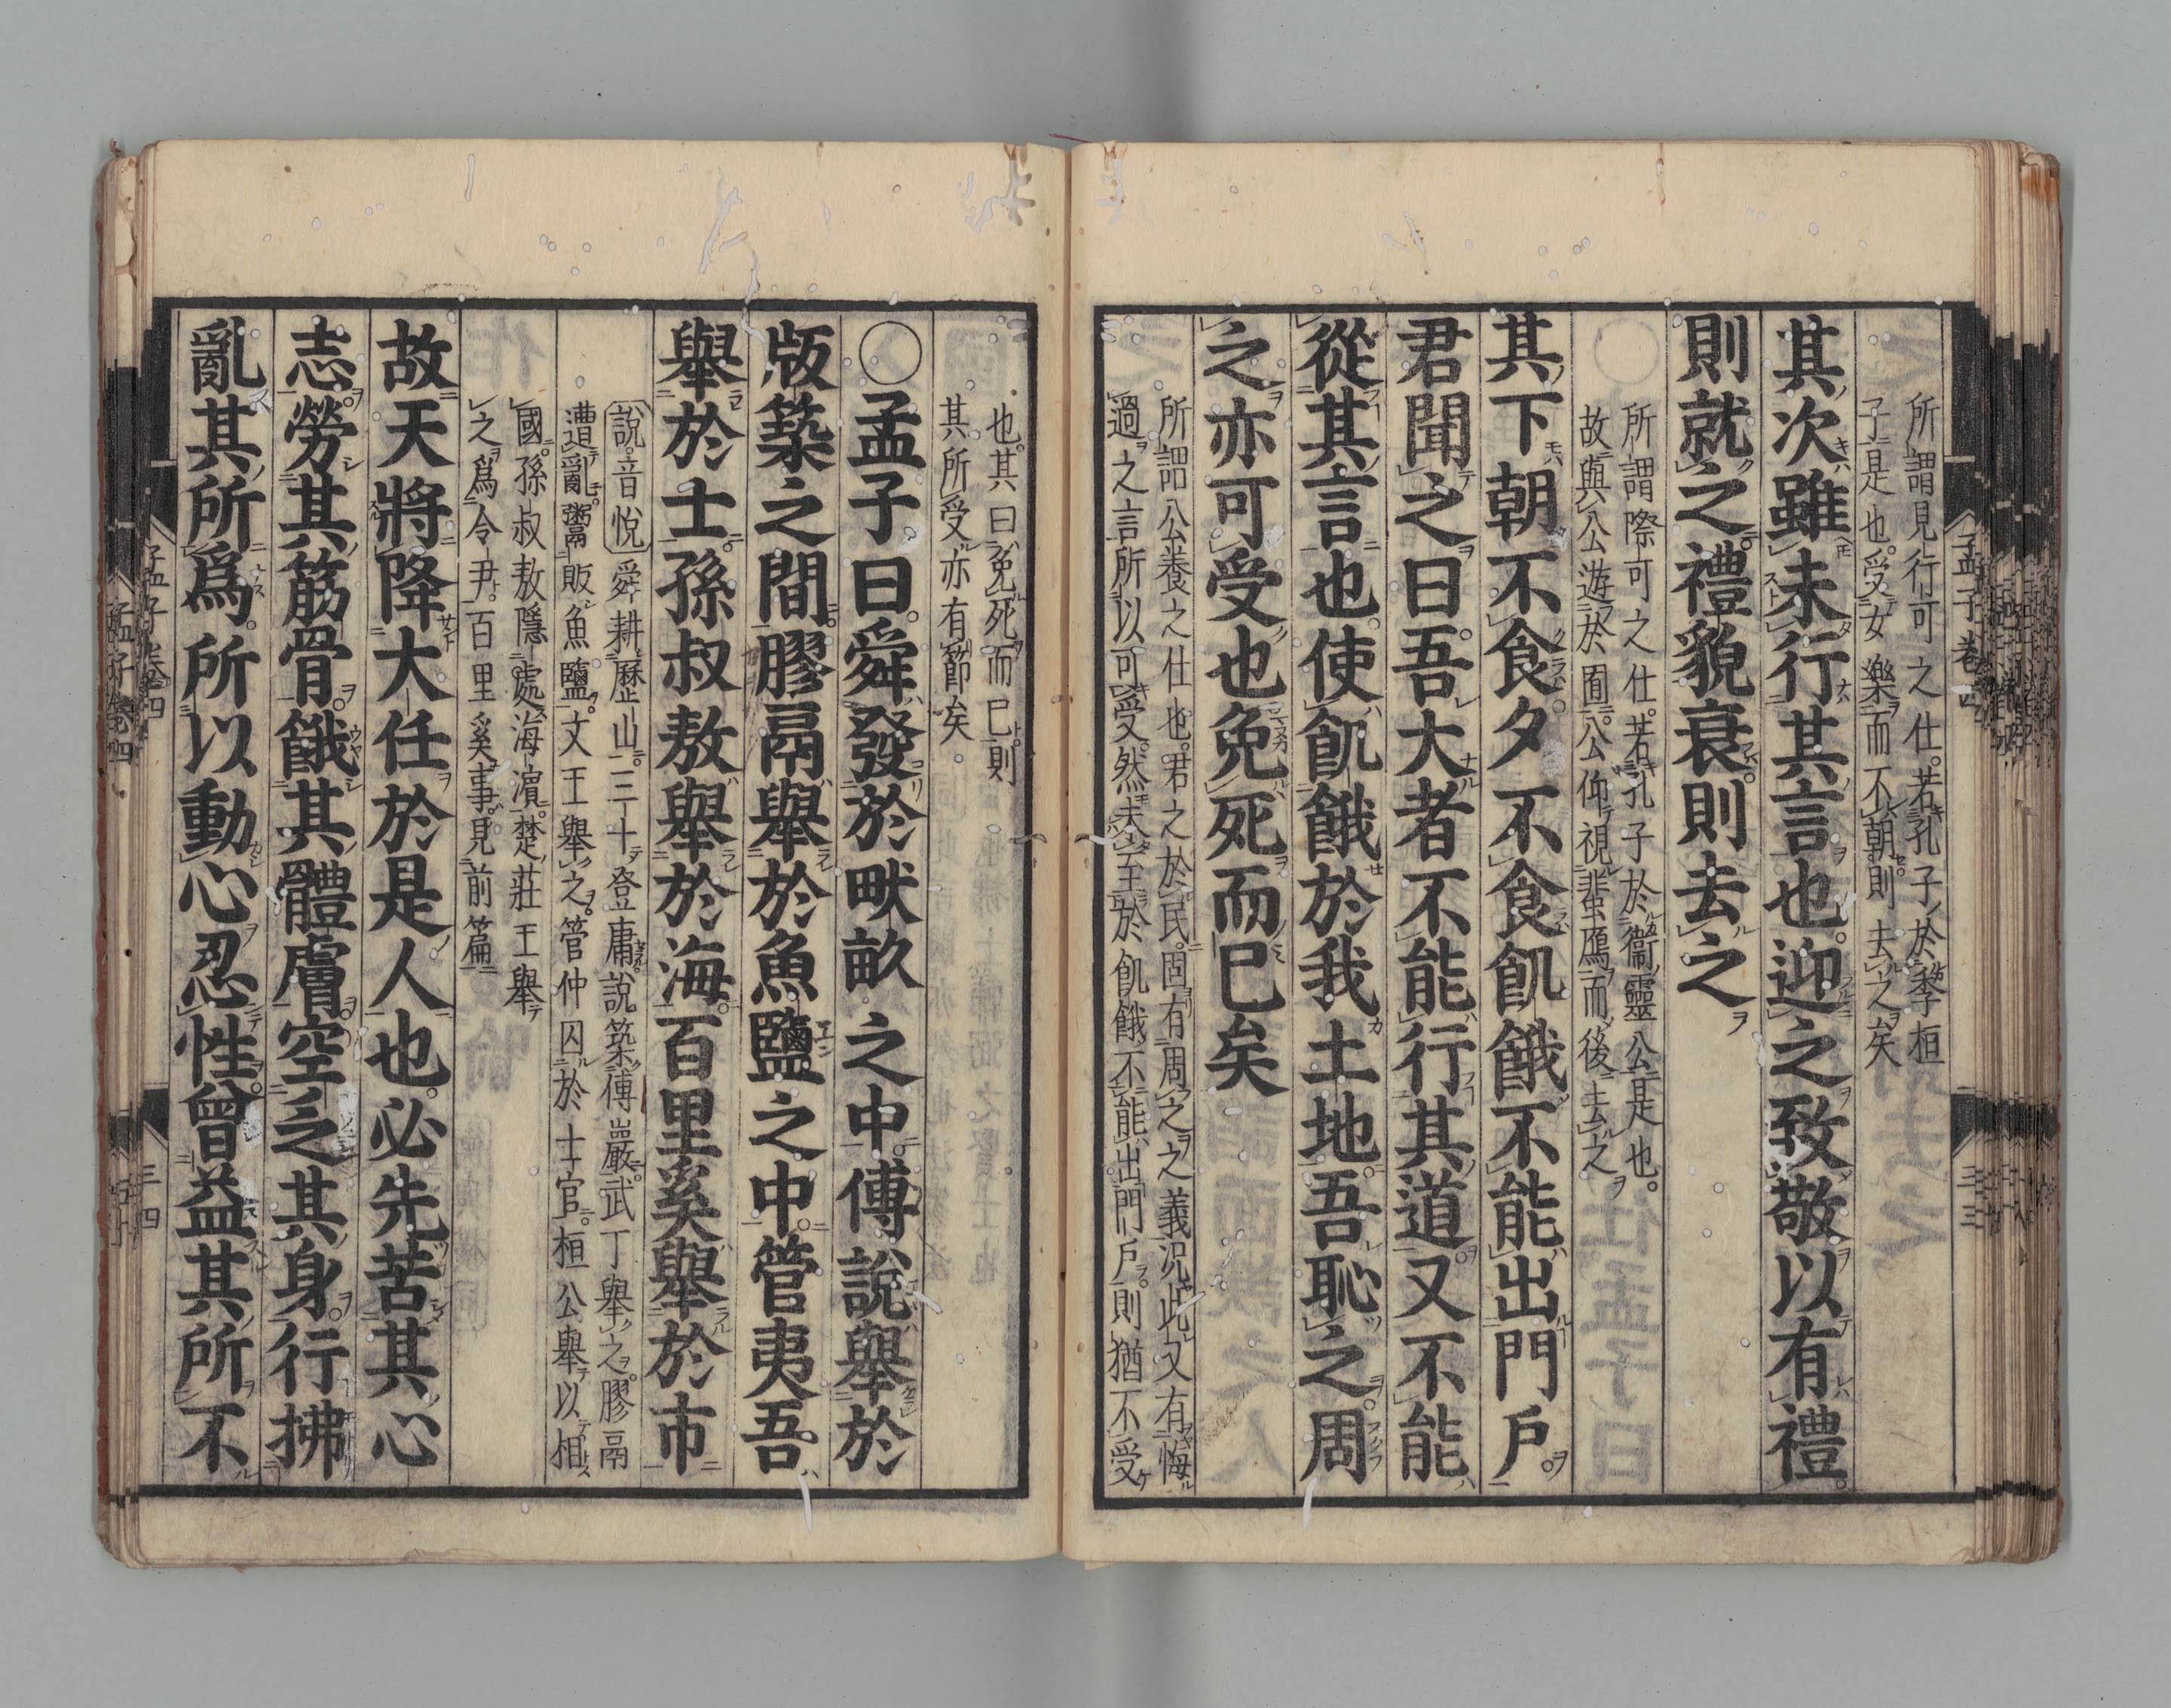 孟子卷四
三三
所謂見行可之仕。若孔子於季桓
子是也。受女樂而不朝則去之矣
其次雖未行其言也。迎之致敬以有禮。
則就之。禮貌衰。則去之
所謂際可之仕。若孔子於衞靈公是也。
故與公遊於囿。公仰視蜚鴈而後去之
其下朝不食。夕不食。飢餓不能出門戶。
君聞之曰。吾大者不能行其道。又不能
從其言也。使飢餓於我土地。吾恥之。周
之亦可受也。免死而已矣
所謂公養之仕也。君之於民。固有周之之義。况此又有悔
過之言所以可受。然未至於飢餓不能出門戶。則猶不受
也。其曰免死而已。則
其所受亦有節矣。
○孟子曰。舜發於畎畝之中。傅說舉於
版築之間。膠鬲舉於魚鹽之中。管夷吾
舉於士。孫叔敖舉於海。百里奚舉於市
說音悅 舜耕歷山。三十登庸。說築傅巖。武丁舉之。膠鬲
遭亂鬻販魚鹽。文王舉之。管仲囚於士官。桓公舉以相
國。孫叔敖隱處海濱。楚莊王舉
之爲令尹。百里奚事。見前篇
故天將降大任於是人也。必先苦其心
志。勞其筋骨。餓其體膚。空乏其身。行拂
亂其所爲。所以動心忍性。曾益其所不
孟子卷四
三四